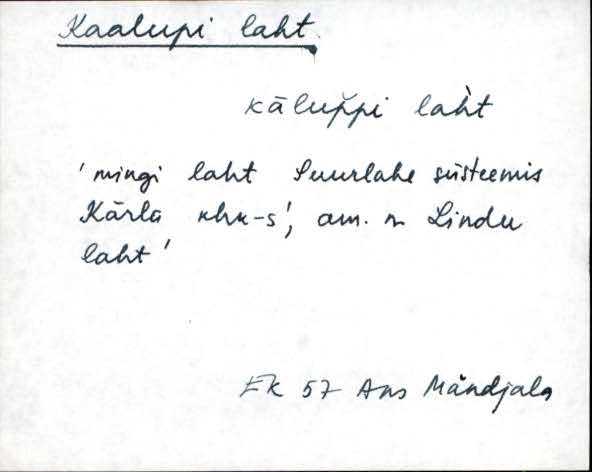 Kaalupi laht
kālup̆pi laht
'mingi laht Suurlahe süsteemis
Kärla khk-s', am. n Lindu
laht'
EK 57 Ans Mändjala